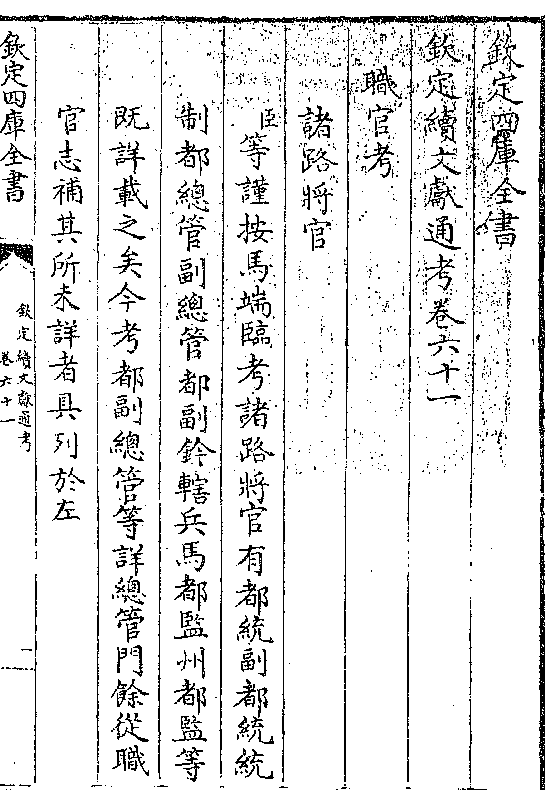 欽定四庫全書
欽定續文獻通考卷六十一
職官考
諸路將官
臣等謹按馬端臨考諸路將官有都統副都統統
制都總管副總管都副鈐轄兵馬都監州都監等
既詳載之矣今考都副總管等詳總管門餘從職
官志補其所未詳者具列於左
欽定四庫全書
欽定續文獻通考
卷六十一
一